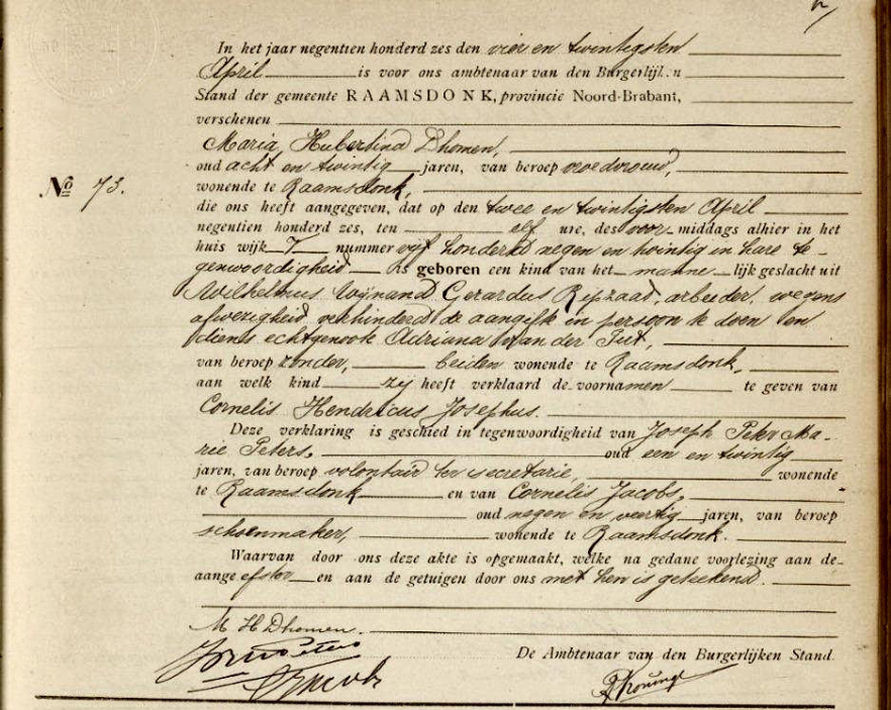 In het jaar negentien honderd zes den vier en twintigsten
April is voor ons ambtenaar van den Burgerlijken
Stand der gemeente RAAMSDONK, provincie Noord-Brabant,
verschenen
Maria Hubertina Dhomen,
oud acht en twintig jaren, van beroep vroedvrouw,
No 73.
wonende te Raamsdonk,
die ons heeft aangegeven, dat op den twee en twintigsten April
negentien honderd zes, ten elf ure, des voor middags alhier in het
huis wijk nummer vijf honderd negen en twintig in hare te-
genwoordigheid is geboren een kind van het manne lijk geslacht uit
Wilhelmus Wijnand Gerardus Rijpzaad, arbeider, wegens
afwezigheid verhinderd de aangifte in persoon te doen en
diens echtgenoote Adriana van der Put,
van beroep zonder, beiden wonende te Raamsdonk,
aan welk kind zij heeft verklaard de voornamen te geven van
Cornelis Hendricus Josephus.
Deze verklaring is geschied in tegenwoordigheid van Joseph Peter Ma-
rie Peters, oud een en twintig
jaren, van beroep volontair ter secretarie, wonende
te Raamsdonk en van Cornelis Jacobs,
oud negen en veertig jaren, van beroep
schoenmaker, wonende te Raamsdonk.
Waarvan door ons deze akte is opgemaakt, welke na gedane voorlezing aan de
aange efster en aan de getuigen door ons met hen is geteekend.
M H Dhomen.
Peters
De Ambtenaar van den Burgerlijken Stand.
C Jacobs